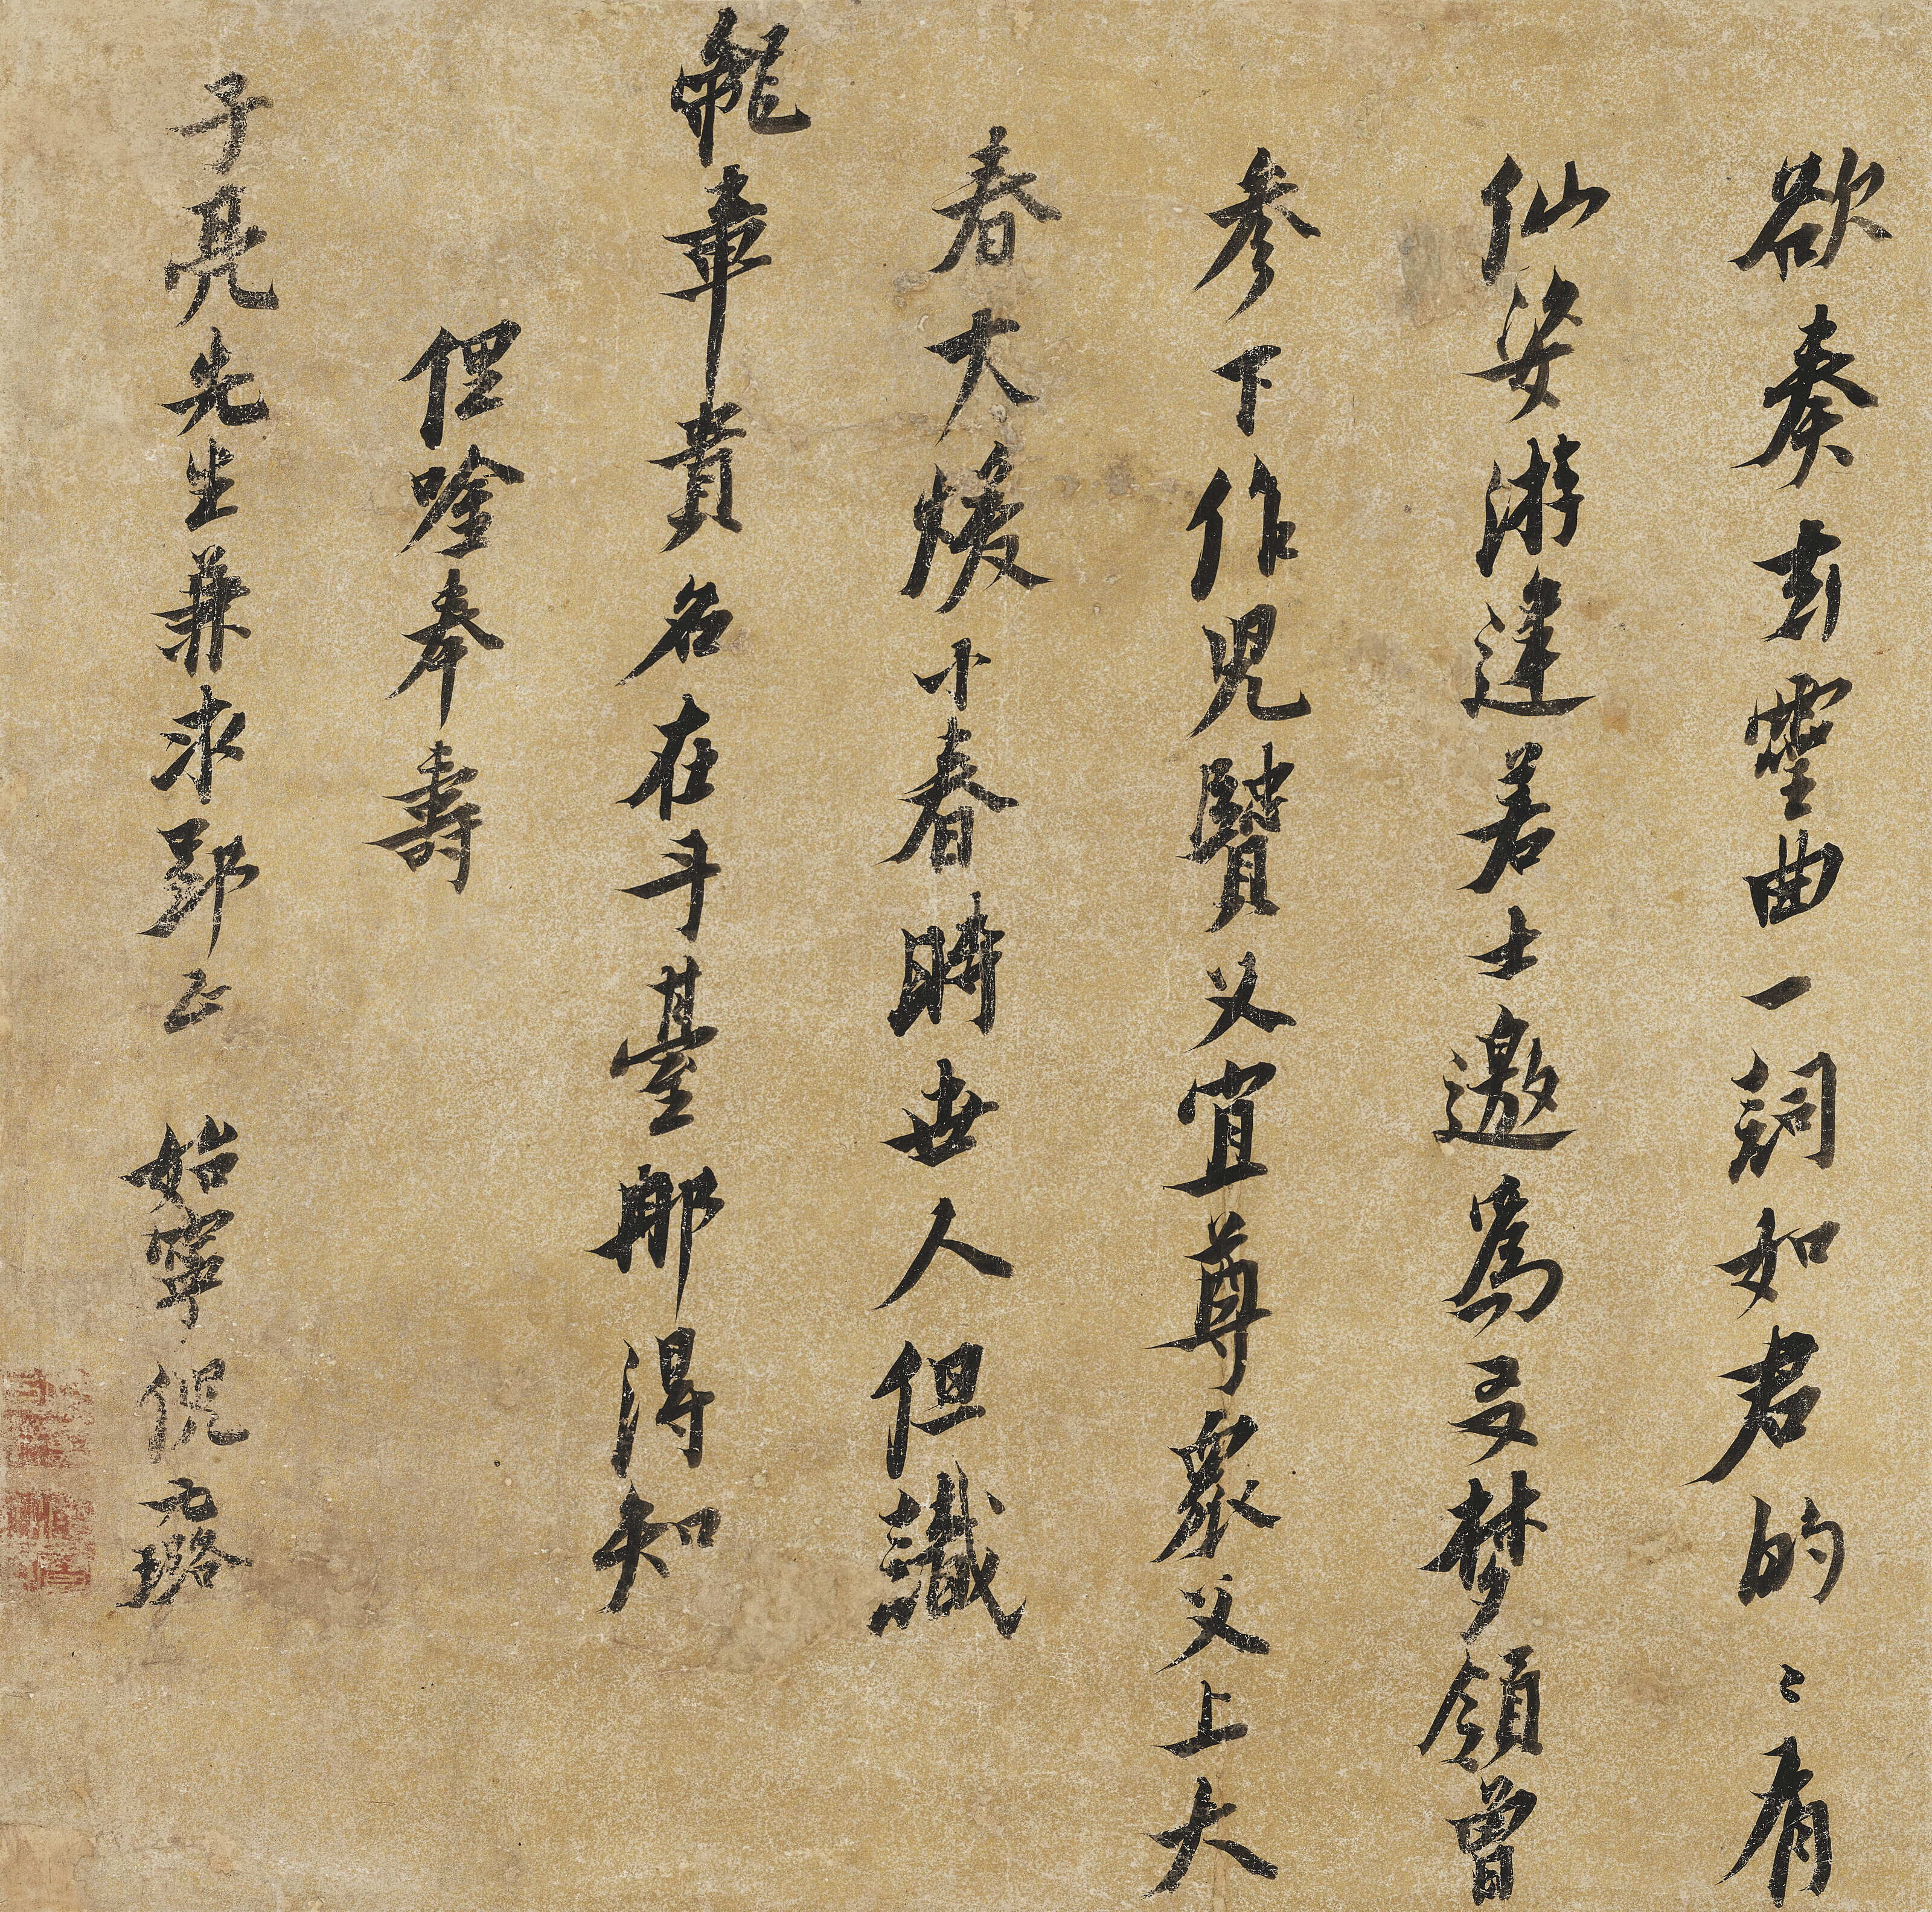 欲奏玄靈曲一詞如君的〻有
仙姿游逢若士邀為友梦領曾
參下作兒賢父宜尊眾父上大
春大煖小春時世人但識
龍車貴名在斗臺那得知
俚唫奉壽
子亮先生兼求郢正 始寧倪元璐